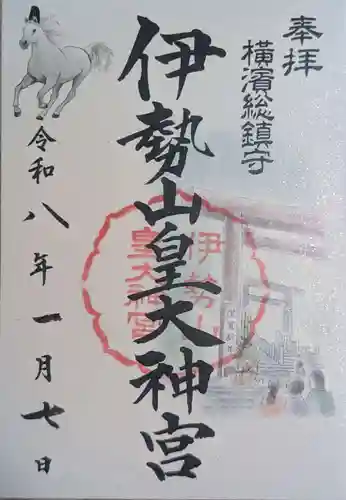 奉拝
横濱総鎮守
伊勢山皇大神宮
伊勢山
皇大神宮
令和八年一月七日